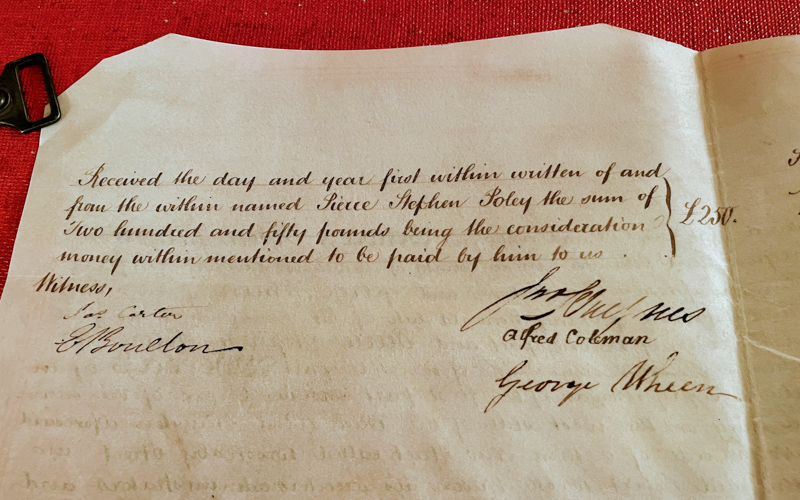 Received the day and year first within written of and
from the within named Pierce Stephen Poley the sum of
Two hundred and fifty pounds being the consideration
money within mentioned to be paid by him to us .
£250.
Witness,
Jas Carter
E Boulton
Jno
Alfred Coleman
George Wheen